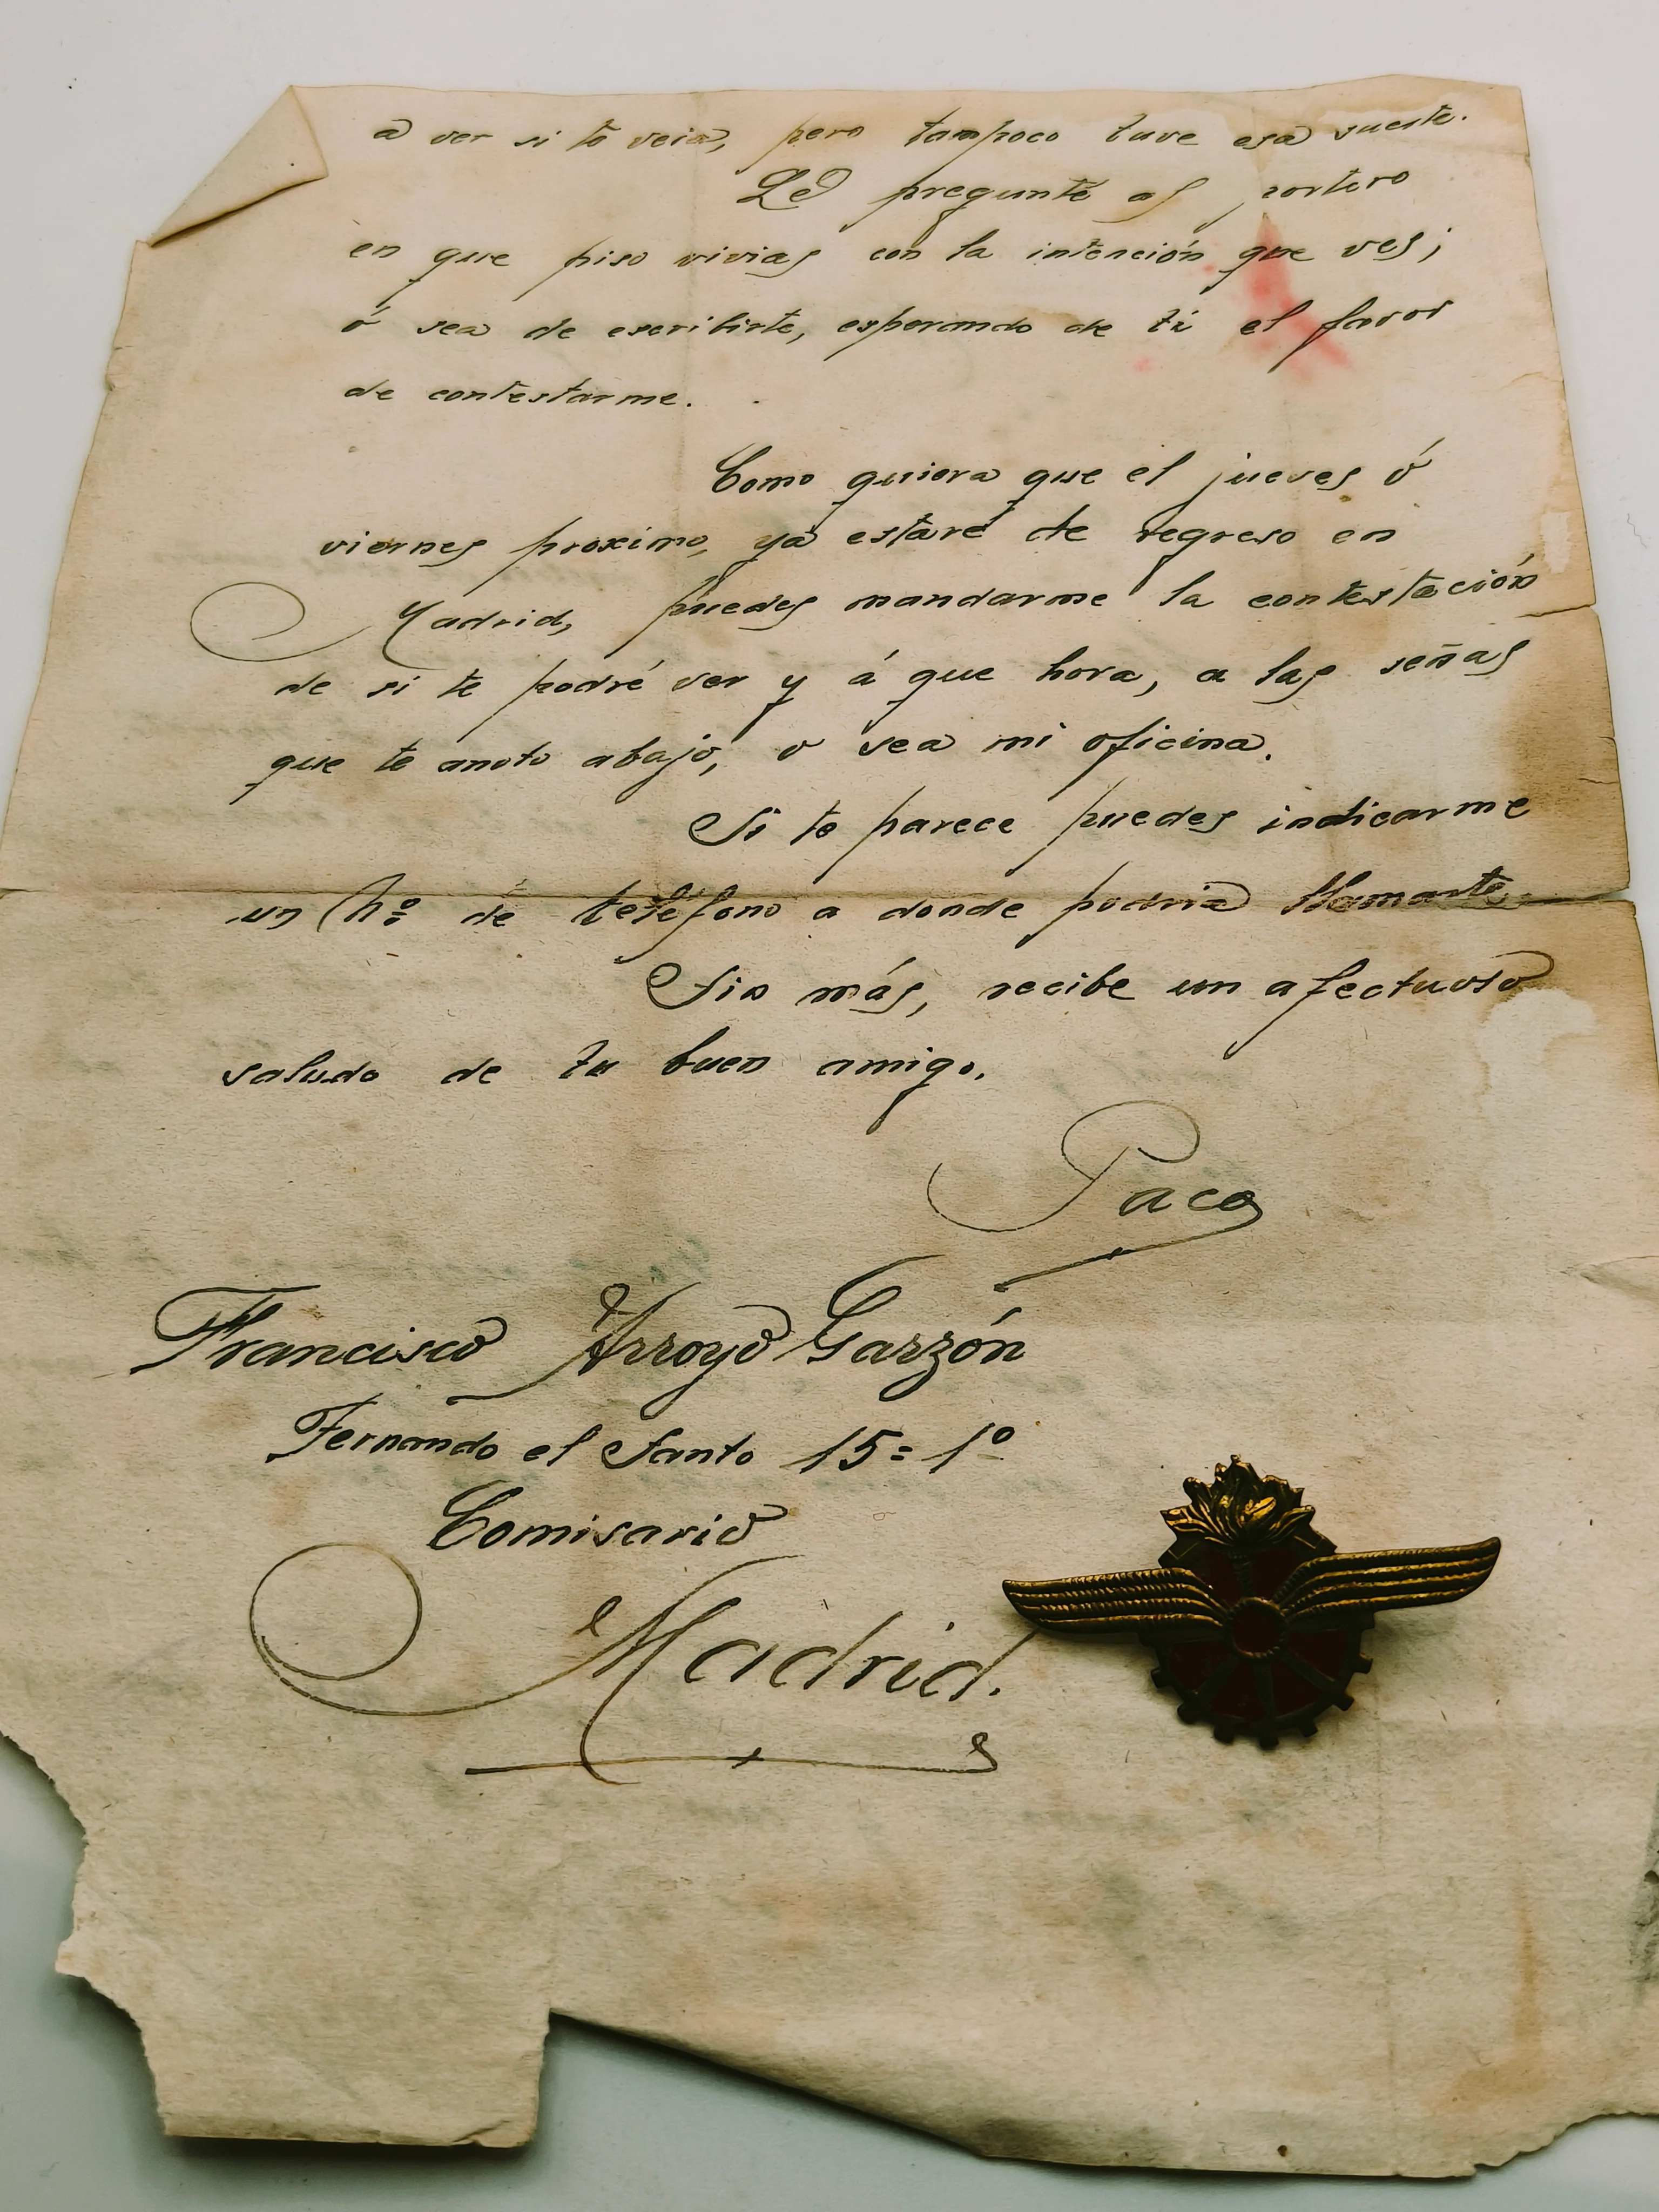 a ver si te veia, pero tampoco tuve esa suerte.
Le pregunté al portero
en que piso vivias con la intención que ves;
ó sea de escribirte, esperando de ti el favor
de contestarme.
Como quiera que el jueves ó
viernes proximo, ya estaré de regreso en
Madrid, puedes mandarme la contestación
de si te podré ver y á que hora, a las señas
que te anoto abajo, o sea mi oficina.
Si te parece puedes indicarme
un nº de teléfono a donde podria llamarte.
Sin más, recibe un afectuoso
saludo de tu buen amigo.
Paco
Francisco Arroyo Garzón
Fernando el Santo 15=1º
Comisario
Madrid.